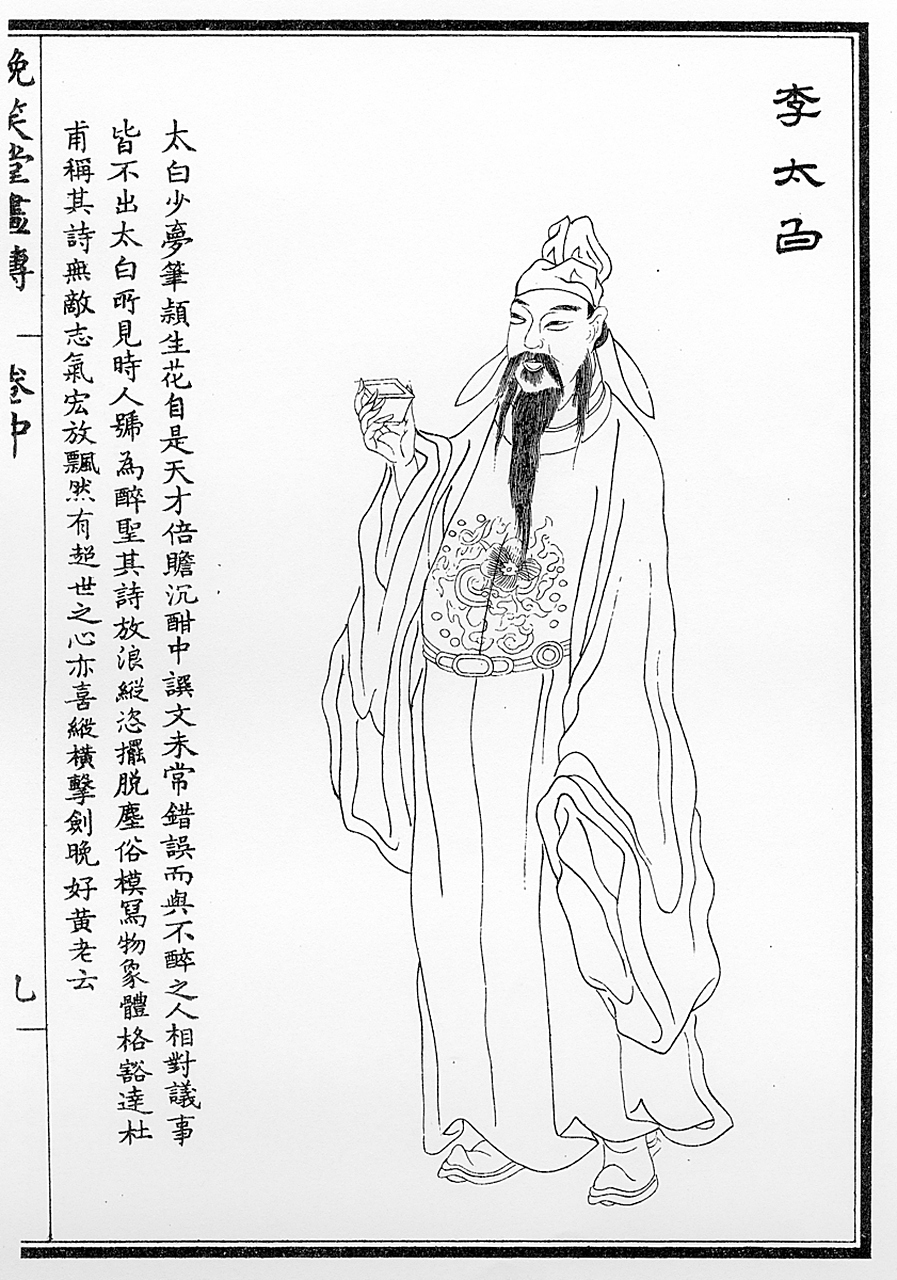 李太白
太白少夢筆頴生花自是天才倍贍沉酣中譔文未常錯誤而與不醉之人相對議事
皆不出太白所見時人號為醉聖其詩放浪縱恣擺脫塵俗模寫物象體格豁達杜
甫稱其詩無敵志氣宏放飄然有超世之心亦喜縱橫擊劍晚好黄老云
晩笑堂畫傳
卷中